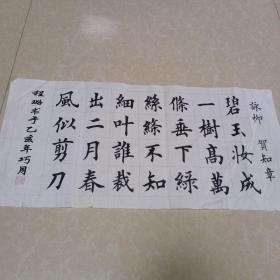 詠柳
賀知章
碧玉妝成
一樹高萬
條垂下綠
絲絛不知
細叶誰裁
出二月春
風似剪刀
程璐書于乙亥年巧月